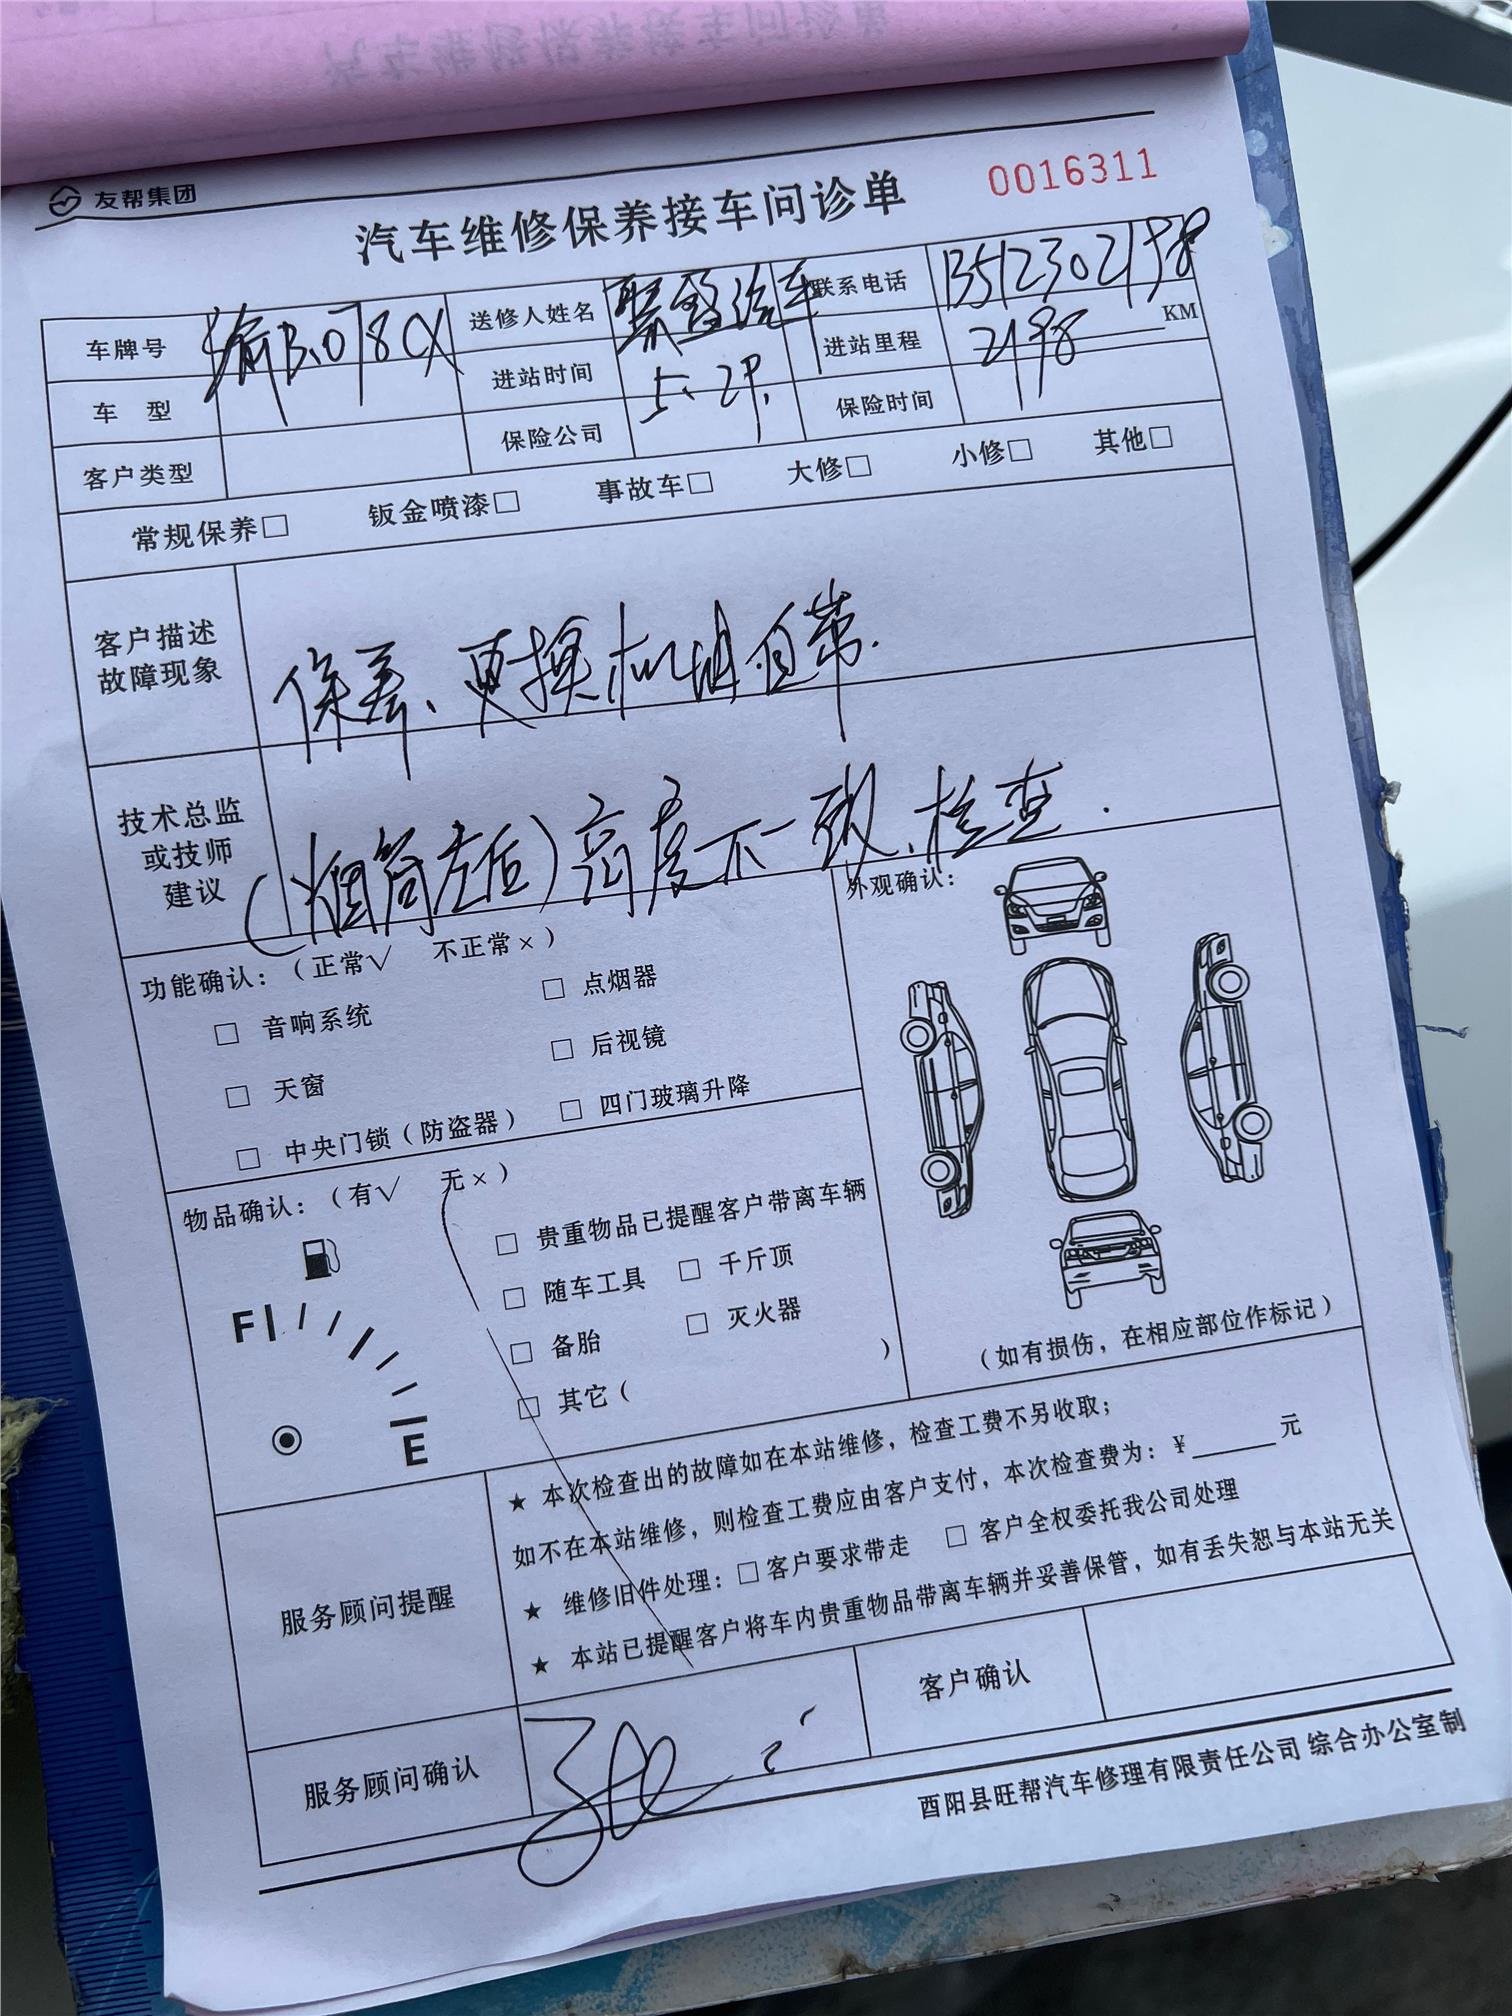 友帮集团
汽车维修保养接车问诊单
0016311
车牌号 渝B.078CX 送修人姓名 汽车 联系电话 13512302198
车 型 进站时间 5.29. 进站里程 2198 KM
客户类型 保险公司 保险时间
常规保养□ 钣金喷漆□ 事故车□ 大修□ 小修□ 其他□
客户描述
故障现象
保养、更换机油自带.
技术总监
或技师
建议
(烟筒左后)高度不一致、检查.
功能确认：（正常√ 不正常×）
□ 音响系统 □ 点烟器
□ 天窗 □ 后视镜
□ 中央门锁（防盗器） □ 四门玻璃升降
外观确认：
（如有损伤，在相应部位作标记）
物品确认：（有√ 无×）
F
E
□ 贵重物品已提醒客户带离车辆
□ 随车工具 □ 千斤顶
□ 备胎 □ 灭火器
□ 其它（ ）
服务顾问提醒
★ 本次检查出的故障如在本站维修，检查工费不另收取；
如不在本站维修，则检查工费应由客户支付，本次检查费为：¥______元
★ 维修旧件处理：□客户要求带走 □ 客户全权委托我公司处理
★ 本站已提醒客户将车内贵重物品带离车辆并妥善保管，如有丢失恕与本站无关
服务顾问确认 客户确认
酉阳县旺帮汽车修理有限责任公司 综合办公室制